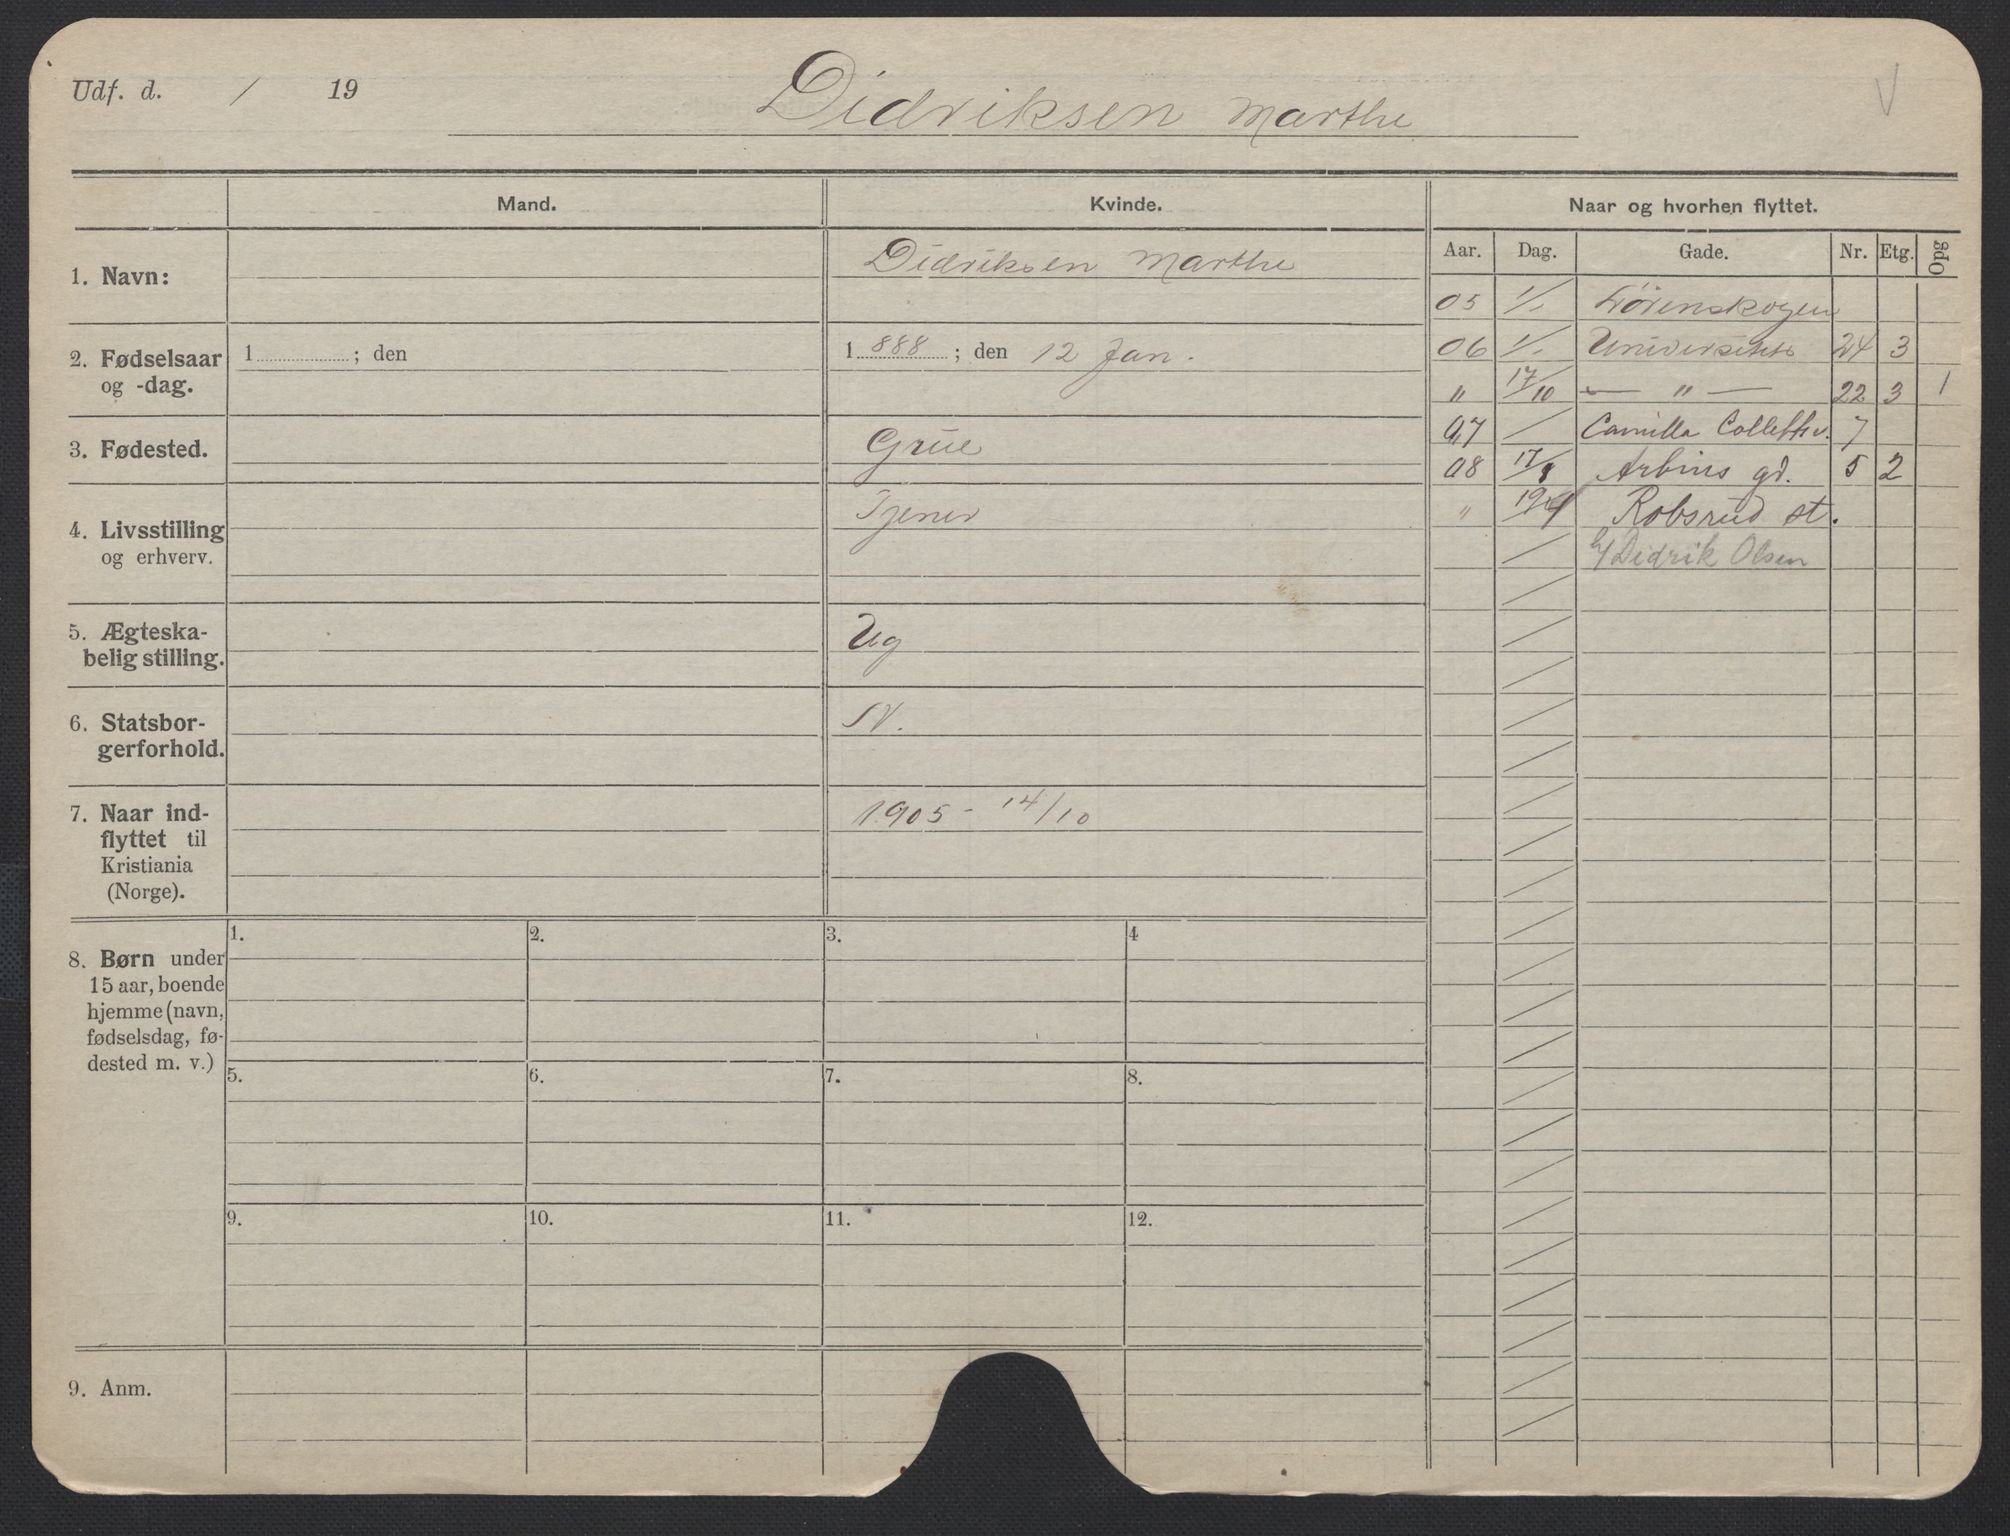 Udf. d. / 19 Didriksen Marthe V
Mand. Kvinde. Naar og hvorhen flyttet.
Aar. Dag. Gade. Nr. Etg. Opg
1. Navn: Didriksen Marthe
05 1/1 Lörenskogen
2. Fødselsaar 1 ; den 1 888 ; den 12 Jan.
og -dag.
06 1/1 Universitets 24 3
" 17/10 — " — 22 3 1
07 / Camilla Colletts v. 7
3. Fødested. Grue
08 17/8 Arbins gd. 5 2
4. Livsstilling Tjener
og erhverv.
" Robsrud st.
/ Didrik Olsen
5. Ægteska-
belig stilling. Ug
6. Statsbor-
gerforhold. N.
7. Naar ind-
flyttet til
Kristiania
(Norge). 1905 - 14/10
8. Børn under
15 aar, boende
hjemme (navn,
fødselsdag, fø-
dested m. v.)
1. 2. 3. 4
5. 6. 7. 8.
9. 10. 11. 12.
9. Anm.